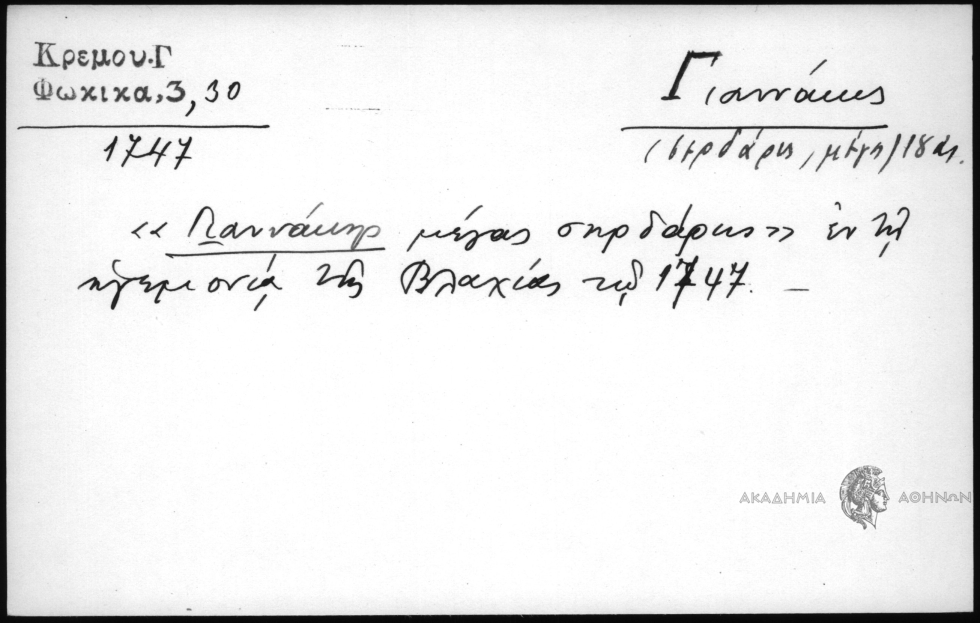 Κρεμου.Γ
Φωκικα,3,30
1747
Γιαννάκης
(σερδάρις, μέγας) 18 αι.
«Γιαννάκης μέγας σηρδάρις» ἐν τῇ
ἡγεμονίᾳ τῆς Βλαχίας τῷ 1747. –
ΑΚΑΔΗΜΙΑ ΑΘΗΝΩΝ